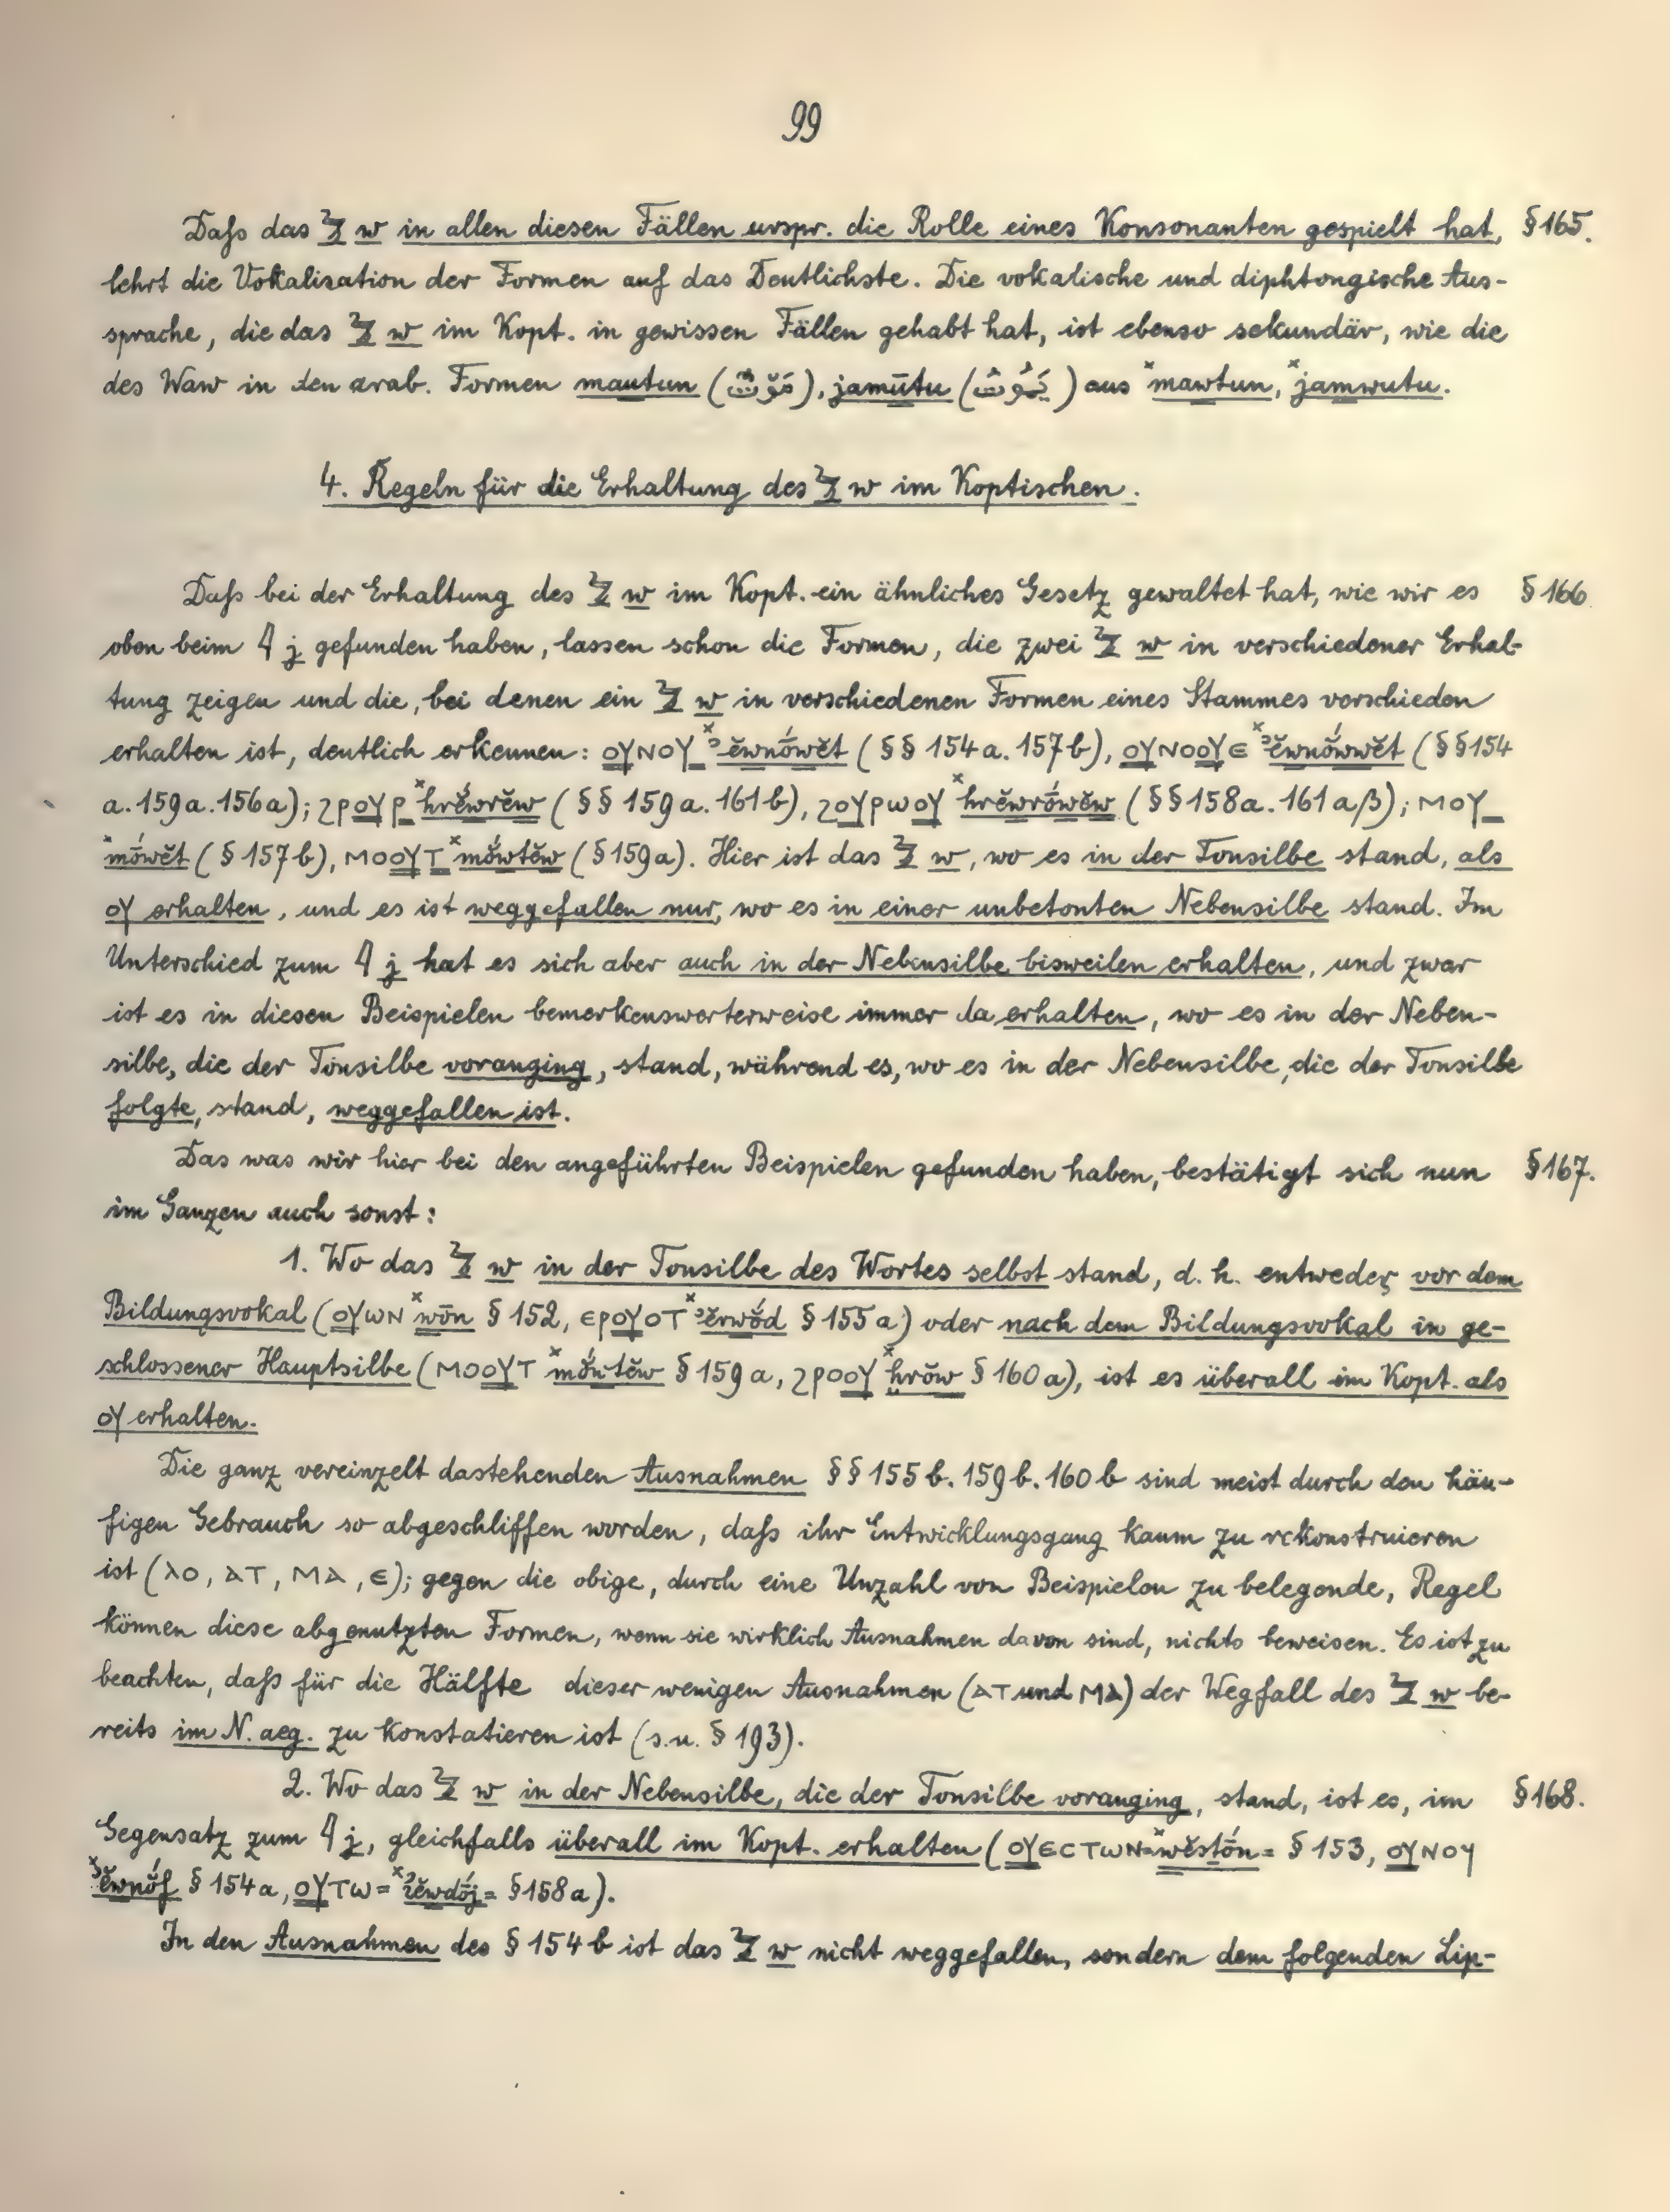 99
Daſs das 𓅱 w in allen diesen Fällen urspr. die Rolle eines Konsonanten gespielt hat, § 165.
lehrt die Vokalisation der Formen auf das Deutlichste. Die vokalische und diphtongische Aus-
sprache, die das 𓅱 w im Kopt. in gewissen Fällen gehabt hat, ist ebenso sekundär, wie die
des Waw in den arab. Formen mautun (مَوْتٌ), jamūtu (يَمُوتُ) aus ˣmawtun, ˣjamwutu.
4. Regeln für die Erhaltung des 𓅱 w im Koptischen.
Daſs bei der Erhaltung des 𓅱 w im Kopt. ein ähnliches Gesetz gewaltet hat, wie wir es § 166
oben beim 𓇋 j gefunden haben, lassen schon die Formen, die zwei 𓅱 w in verschiedener Erhal-
tung zeigen und die, bei denen ein 𓅱 w in verschiedenen Formen eines Stammes verschieden
erhalten ist, deutlich erkennen: ⲟⲩⲛⲟⲩ_ ˣꜣĕwnówĕt (§§ 154a. 157b), ⲟⲩⲛⲟⲟⲩⲉ ˣꜣĕwnŏ́wwĕt (§§ 154
a. 159a. 156a); ϩⲣⲟⲩⲣ_ ˣhrĕ́wrĕw (§§ 159a. 161b), ϩⲟⲩⲣⲱⲟⲩ ˣhrĕwrṓwĕw (§§ 158a. 161aβ); ⲙⲟⲩ_
ˣmōwĕt (§ 157b), ⲙⲟⲟⲩⲧ_ ˣmŏ́wtĕw (§ 159a). Hier ist das 𓅱 w, wo es in der Tonsilbe stand, als
ⲟⲩ erhalten, und es ist weggefallen nur, wo es in einer unbetonten Nebensilbe stand. Im
Unterschied zum 𓇋 j hat es sich aber auch in der Nebensilbe bisweilen erhalten, und zwar
ist es in diesen Beispielen bemerkenswerterweise immer da erhalten, wo es in der Neben-
silbe, die der Tonsilbe voranging, stand, während es, wo es in der Nebensilbe, die der Tonsilbe
folgte, stand, weggefallen ist.
Das was wir hier bei den angeführten Beispielen gefunden haben, bestätigt sich nun § 167.
im Ganzen auch sonst:
1. Wo das 𓅱 w in der Tonsilbe des Wortes selbst stand, d. h. entweder vor dem
Bildungsvokal (ⲟⲩⲱⲛ ˣwōn § 152, ⲉⲣⲟⲩⲟⲧ ˣꜣĕrwŏ́d § 155a) oder nach dem Bildungsvokal in ge-
schlossener Hauptsilbe (ⲙⲟⲟⲩⲧ ˣmŏ́wtĕw § 159a, ϩⲣⲟⲟⲩ ˣḫrŏw § 160a), ist es überall im Kopt. als
ⲟⲩ erhalten.
Die ganz vereinzelt dastehenden Ausnahmen §§ 155b. 159b. 160b sind meist durch den häu-
figen Gebrauch so abgeschliffen worden, daſs ihr Entwicklungsgang kaum zu rekonstruieren
ist (ⲗⲟ, ⲁⲧ, ⲙⲁ, ⲉ); gegen die obige, durch eine Unzahl von Beispielen zu belegende, Regel
können diese abgenutzten Formen, wenn sie wirklich Ausnahmen davon sind, nichts beweisen. Es ist zu
beachten, daſs für die Hälfte dieser wenigen Ausnahmen (ⲁⲧ und ⲙⲁ) der Wegfall des 𓅱 w be-
reits im N. aeg. zu konstatieren ist (s. u. § 193).
2. Wo das 𓅱 w in der Nebensilbe, die der Tonsilbe voranging, stand, ist es, im § 168.
Gegensatz zum 𓇋 j, gleichfalls überall im Kopt. erhalten (ⲟⲩⲉⲥⲧⲱⲛ= ˣwĕstṓn= § 153, ⲟⲩⲛⲟϥ
ˣꜣĕwnŏ́f § 154a, ⲟⲩⲧⲱ= ˣꜣĕwdṓj= § 158a).
In den Ausnahmen des § 154b ist das 𓅱 w nicht weggefallen, sondern dem folgenden Lip-